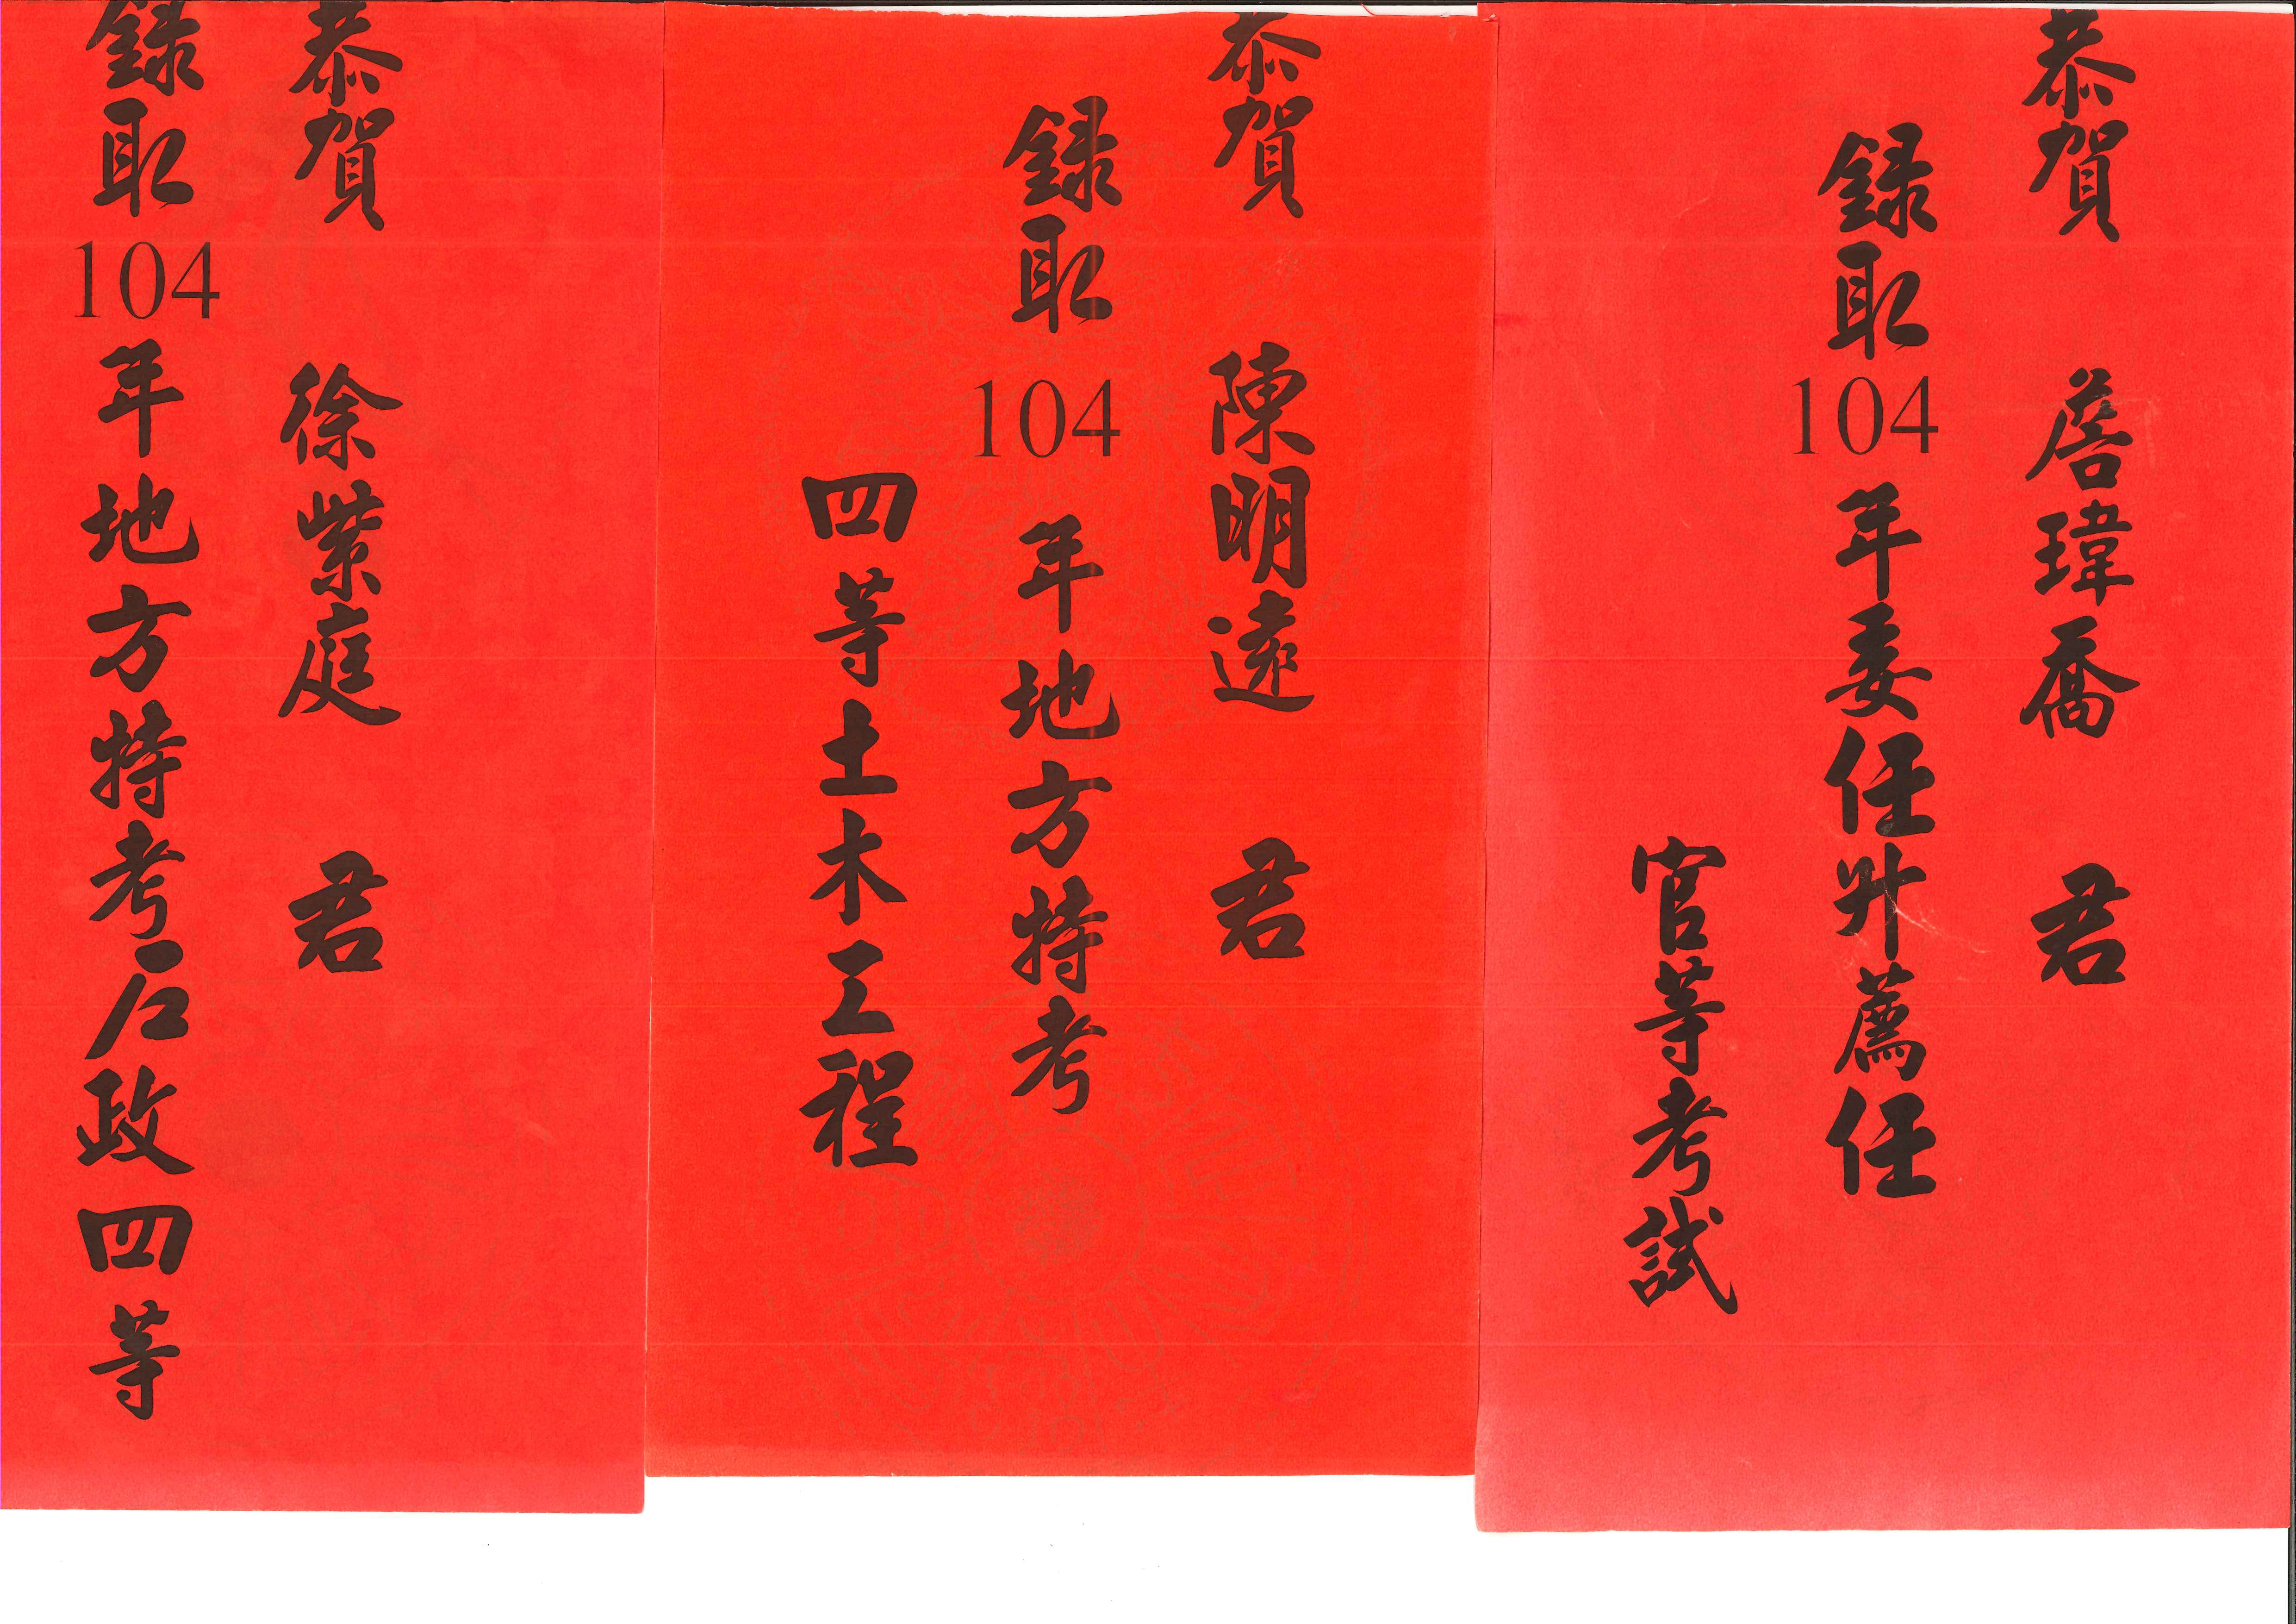 恭賀 詹瑋喬 君
錄取104年委任升薦任
官等考試
恭賀 陳明遠 君
錄取104年地方特考
四等土木工程
恭賀 徐紫庭 君
錄取104年地方特考戶政四等